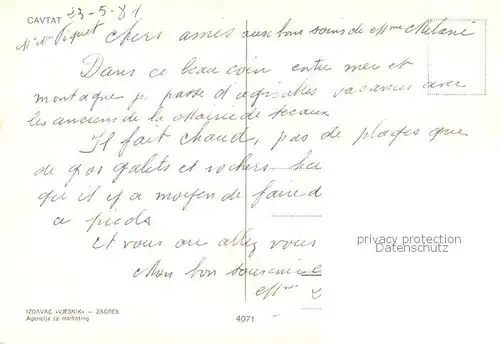 CAVTAT 23-5-81
Mr Mme Piquet chers amis aux bons soins de Mme Melani
Dans ce beau coin entre mer et
montagne je passe d'agréables vacances avec
les anciens de la Mairie de Sceaux
Il fait chaud, pas de plages que
de gos galets et rochers
qu'il y a moyen de faire d
a pieds
et vous ou allez vous
Mon bon souvenir
Mme
privacy protection
Datenschutz
IZDAVAČ »VJESNIK« — ZAGREB
Agencija za marketing
4071